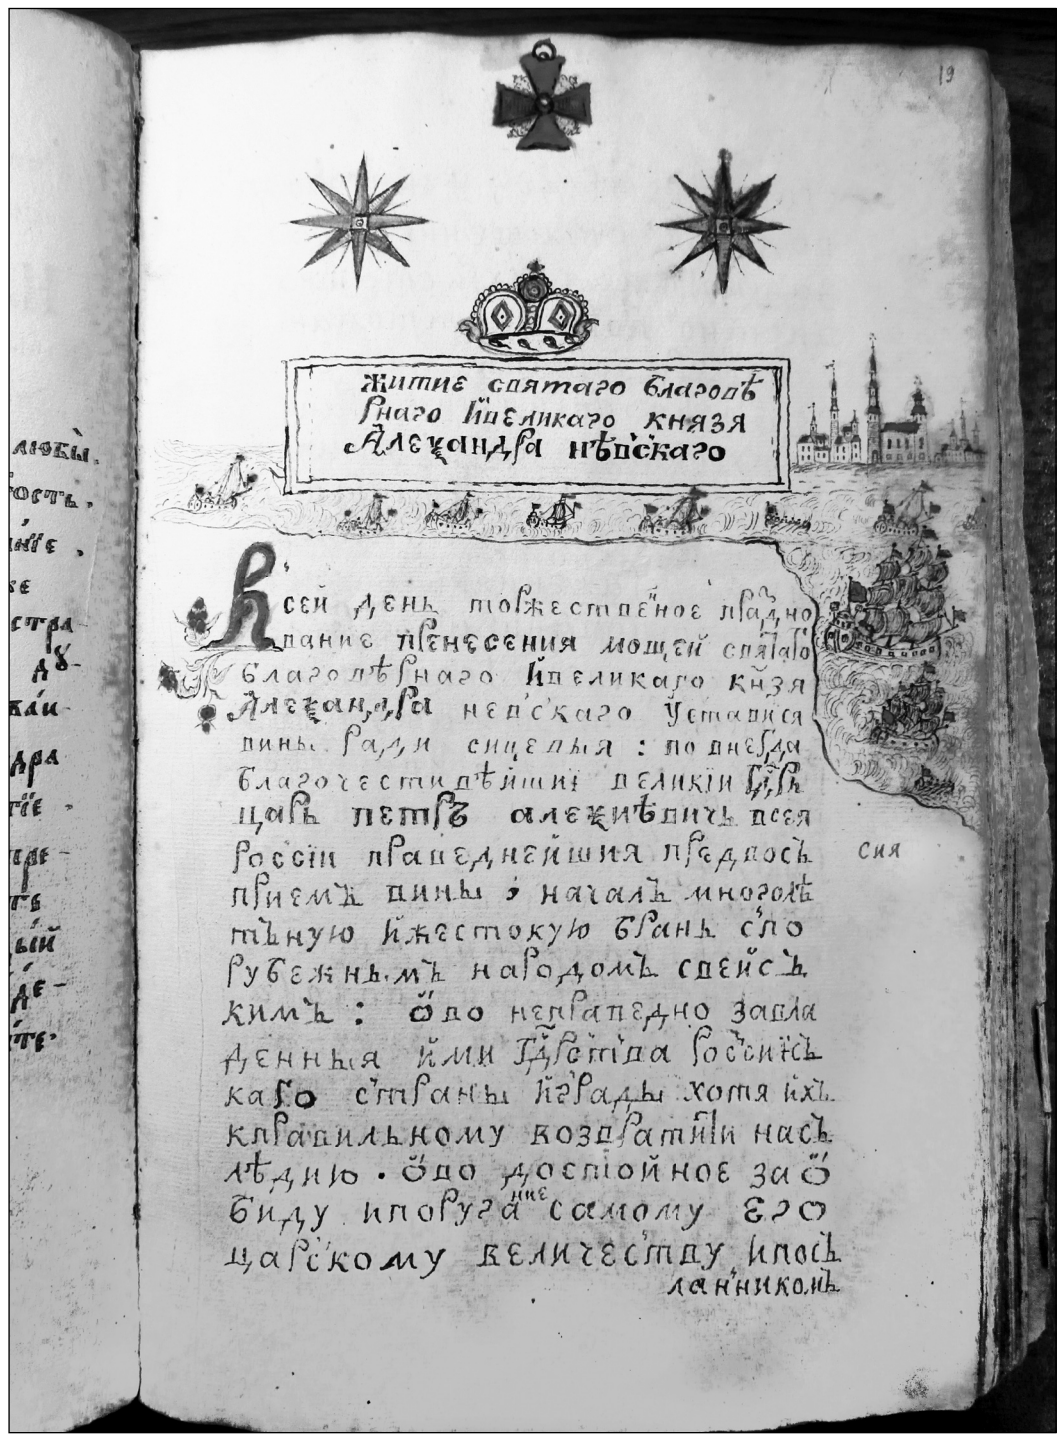 19
житие святаго благовѣ
рнаго и великаго князя
Алеѯандра нѣвскаго
Всей день торжественое праздно
вание пренесения мощей святаго
благовѣрнаго и великаго кнзя
Алеѯандра невскаго уставися
вины ради сицевыя : по внегда
благочестивѣйшиї великїи гдрь
царь петръ алеѯиѣвичь всея
россїи праведнейшия предвосъ
сия
приемъ вины ; началъ многолѣ
тъную и жестокую брань спо
рубежнымъ народомъ свейсъ
кимъ : ѿво неправедно завла
денныя ими гдрства россиїсъ
каго страны и грады хотя ихъ
кправильному возвратити насъ
лѣдию . ѿво достойное за ѡ
биду ипоругание самому его
царскому величеству ипосъ
ланникомъ
любы.
ость.
нїе .
ве
стра-
дꙋ-
дра
тїе .
пре-
тъ
ый
де-
те.